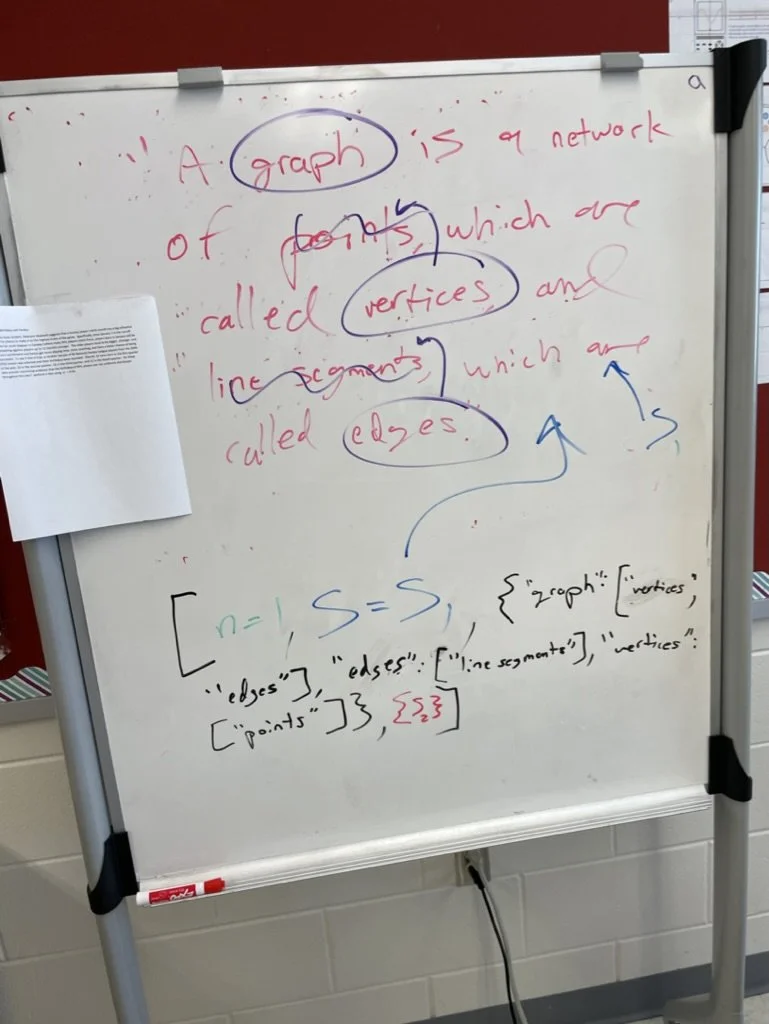 a
" A graph is a network
of points, which are
called vertices, and
" line segments, which are
called edges.
S₁
[n=1, S=S₁, {"graph": ["vertices",
"edges"], "edges": ["line segments"], "vertices":
["points"]}, {S₂}]